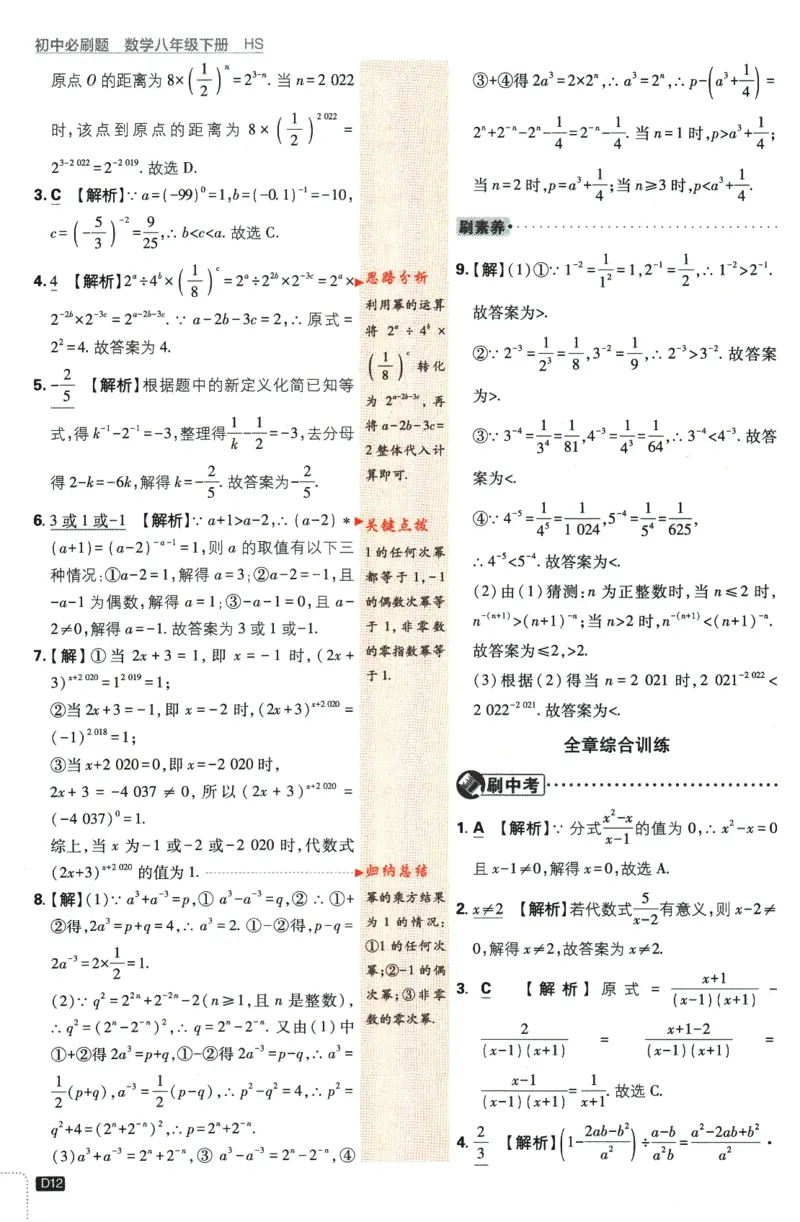 初中必刷题 数学八年级下册 HS
原点 O 的距离为 8×(1/2)ⁿ=2³⁻ⁿ. 当 n=2 022
时,该点到原点的距离为 8×(1/2)²⁰²² =
2³⁻²⁰²²=2⁻²⁰¹⁹. 故选 D.
3. C 【解析】∵ a=(-99)⁰=1,b=(-0.1)⁻¹=-10,
c=(-5/3)⁻²=9/25,∴ b<c<a. 故选 C.
4. 4 【解析】2ᵃ÷4ᵇ×(1/8)ᶜ=2ᵃ÷2²ᵇ×2⁻³ᶜ=2ᵃ×
2⁻²ᵇ×2⁻³ᶜ=2ᵃ⁻²ᵇ⁻³ᶜ. ∵ a-2b-3c=2,∴ 原式=
2²=4. 故答案为 4.
5. -2/5 【解析】根据题中的新定义化简已知等
式,得 k⁻¹-2⁻¹=-3,整理得1/k-1/2=-3,去分母
得 2-k=-6k,解得 k=-2/5. 故答案为-2/5.
6. 3 或 1 或-1 【解析】∵ a+1>a-2,∴ (a-2) *
(a+1)=(a-2)⁻ᵃ⁻¹=1,则 a 的取值有以下三
种情况:①a-2=1,解得 a=3;②a-2=-1,且
-a-1 为偶数,解得 a=1;③-a-1=0,且 a-
2≠0,解得 a=-1. 故答案为 3 或 1 或-1.
7. 【解】①当 2x+3=1,即 x=-1 时,(2x+
3)ˣ⁺²⁰²⁰=1²⁰¹⁹=1;
②当 2x+3=-1,即 x=-2 时,(2x+3)ˣ⁺²⁰²⁰=
(-1)²⁰¹⁸=1;
③当 x+2 020=0,即 x=-2 020 时,
2x+3=-4 037≠0,所以(2x+3)ˣ⁺²⁰²⁰=
(-4 037)⁰=1.
综上,当 x 为-1 或-2 或-2 020 时,代数式
(2x+3)ˣ⁺²⁰²⁰ 的值为 1.
8. 【解】(1)∵ a³+a⁻³=p,① a³-a⁻³=q,② ∴ ①+
②得,2a³=p+q=4,∴ a³=2. ①-②得,p-q=
2a⁻³=2×1/2=1.
(2)∵ q²=2²ⁿ+2⁻²ⁿ-2(n≥1,且 n 是整数),
∴ q²=(2ⁿ-2⁻ⁿ)²,∴ q=2ⁿ-2⁻ⁿ. 又由(1)中
①+②得 2a³=p+q,①-②得 2a⁻³=p-q,∴ a³=
1/2(p+q),a⁻³=1/2(p-q),∴ p²-q²=4,∴ p²=
q²+4=(2ⁿ+2⁻ⁿ)²,∴ p=2ⁿ+2⁻ⁿ.
(3)a³+a⁻³=2ⁿ+2⁻ⁿ,③ a³-a⁻³=2ⁿ-2⁻ⁿ,④
思路分析
利用幂的运算
将 2ᵃ÷4ᵇ×
(1/8)ᶜ 转化
为 2ᵃ⁻²ᵇ⁻³ᶜ,再
将 a-2b-3c=
2 整体代入计
算即可.
关键点拨
1 的任何次幂
都等于 1,-1
的偶数次幂等
于 1,非零数
的零指数幂等
于 1.
归纳总结
幂的乘方结果
为 1 的情况:
①1 的任何次
幂;②-1 的偶
次幂;③非零
数的零次幂.
③+④得 2a³=2×2ⁿ,∴ a³=2ⁿ,∴ p-(a³+1/4)=
2ⁿ+2⁻ⁿ-2ⁿ-1/4=2⁻ⁿ-1/4. 当 n=1 时,p>a³+1/4;
当 n=2 时,p=a³+1/4;当 n≥3 时,p<a³+1/4.
刷素养
9. 【解】(1)①∵ 1⁻²=1/1²=1,2⁻¹=1/2,∴ 1⁻²>2⁻¹.
故答案为>.
②∵ 2⁻³=1/2³=1/8,3⁻²=1/9,∴ 2⁻³>3⁻². 故答案
为>.
③∵ 3⁻⁴=1/3⁴=1/81,4⁻³=1/4³=1/64,∴ 3⁻⁴<4⁻³. 故答
案为<.
④∵ 4⁻⁵=1/4⁵=1/1 024,5⁻⁴=1/5⁴=1/625,
∴ 4⁻⁵<5⁻⁴. 故答案为<.
(2)由(1)猜测:n 为正整数时,当 n≤2 时,
n⁻⁽ⁿ⁺¹⁾>(n+1)⁻ⁿ;当 n>2 时,n⁻⁽ⁿ⁺¹⁾<(n+1)⁻ⁿ.
故答案为≤2,>2.
(3)根据(2)得当 n=2 021 时,2 021⁻²⁰²²<
2 022⁻²⁰²¹. 故答案为<.
全章综合训练
刷中考
1. A 【解析】∵ 分式(x²-x)/(x-1)的值为 0,∴ x²-x=0
且 x-1≠0,解得 x=0,故选 A.
2. x≠2 【解析】若代数式5/(x-2)有意义,则 x-2≠
0,解得 x≠2,故答案为 x≠2.
3. C 【解析】原式=(x+1)/((x-1)(x+1))-
2/((x-1)(x+1))=(x+1-2)/((x-1)(x+1))=
(x-1)/((x-1)(x+1))=1/(x+1). 故选 C.
4. 2/3 【解析】(1-(2ab-b²)/a²)÷(a-b)/(a²b)=(a²-2ab+b²)/a²·
D12